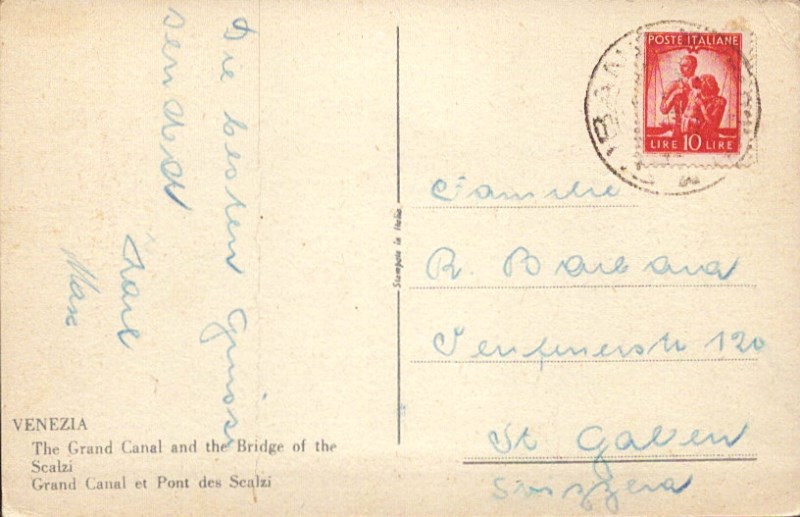 Die besten Grüsse
sendet
Karl
Max
VENEZIA
The Grand Canal and the Bridge of the
Scalzi
Grand Canal et Pont des Scalzi
Stampato in Italia
POSTE ITALIANE
LIRE 10 LIRE
Familie
R. Barbara
120
St Gallen
Svizzera